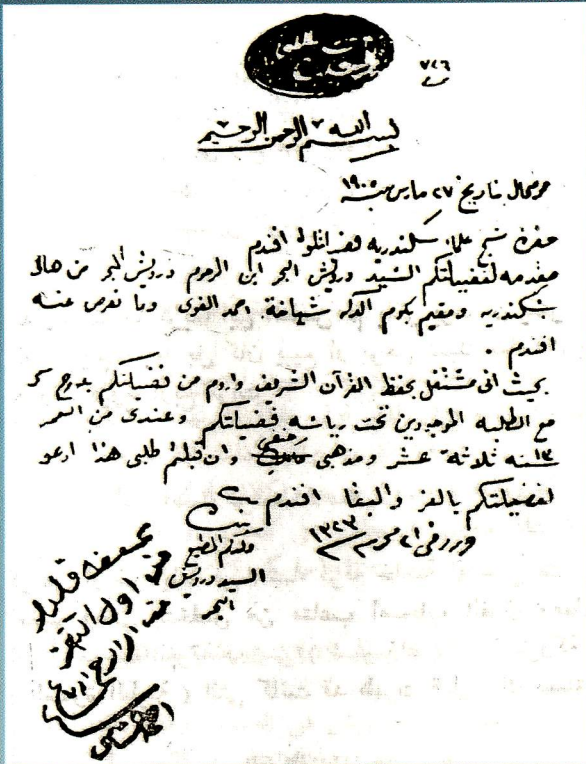 ٧٤٦
بسم الله الرحمن الرحيم
بتاريخ ٢٧ مارس سنة ١٩٠٥
حضرة شيخ علماء سكندريه فضيلتلو افندم
مقدمه لفضيلتكم السيد درويش البحر ابن المرحوم درويش البحر من اهالى
سكندريه ومقيم بكوم الدكه شياخة احمد الفوى وما نعرض عنه
افندم .
بحيث انى مشتغل بحفظ القرآن الشريف واروم من فضيلتكم بدرج
مع الطلبه الموجودين تحت رياسة فضيلتكم وعندى من العمر
١٣ سنه ثلاثة عشر ومذهبى حنفى وان قبلتم طلبى هذا ادعو
لفضيلتكم بالعز والبقا افندم
٢١ محرم ١٣٢٣
ولدكم المطيع
السيد درويش
البحر